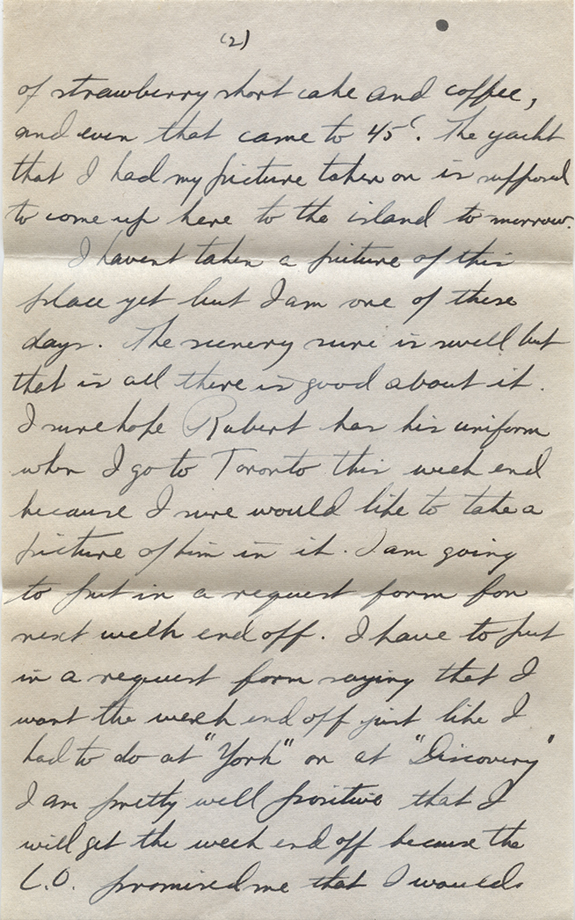 (2)
of strawberry short cake and coffee,
and even that came to 45¢. The yacht
that I had my picture taken on is supposed
to come up here to the island to morrow.
I havent taken a picture of this
place yet but I am one of these
days. The scenery sure is swell but
that is all there is good about it.
I sure hope Robert has his uniform
when I go to Toronto this week end
because I sure would like to take a
picture of him in it. I am going
to put in a request form for
next week end off. I have to put
in a request form saying that I
want the week end off just like I
had to do at "York" or at "Discovery"
I am pretty well positive that I
will get the week end off because the
C.O. promised me that I would